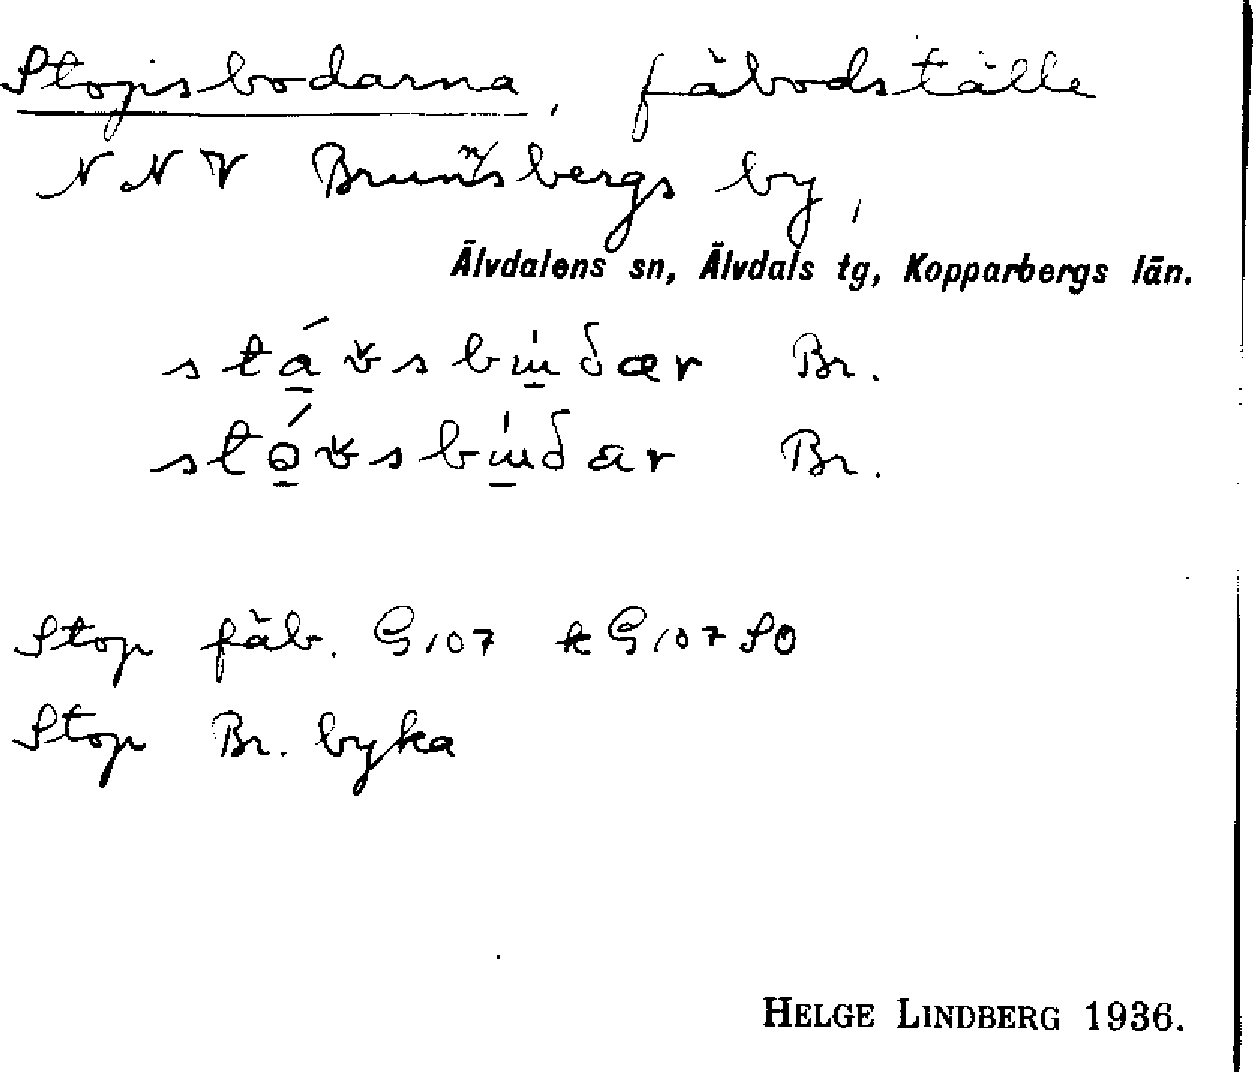 Stopisbodarna, fäbodställe
NNV Brunnsbergs by,
Älvdalens sn, Älvdals tg, Kopparbergs län.
Br.
Br.
Stop fäb. G107 kG107SO
Stop Br. byka
HELGE LINDBERG 1936.